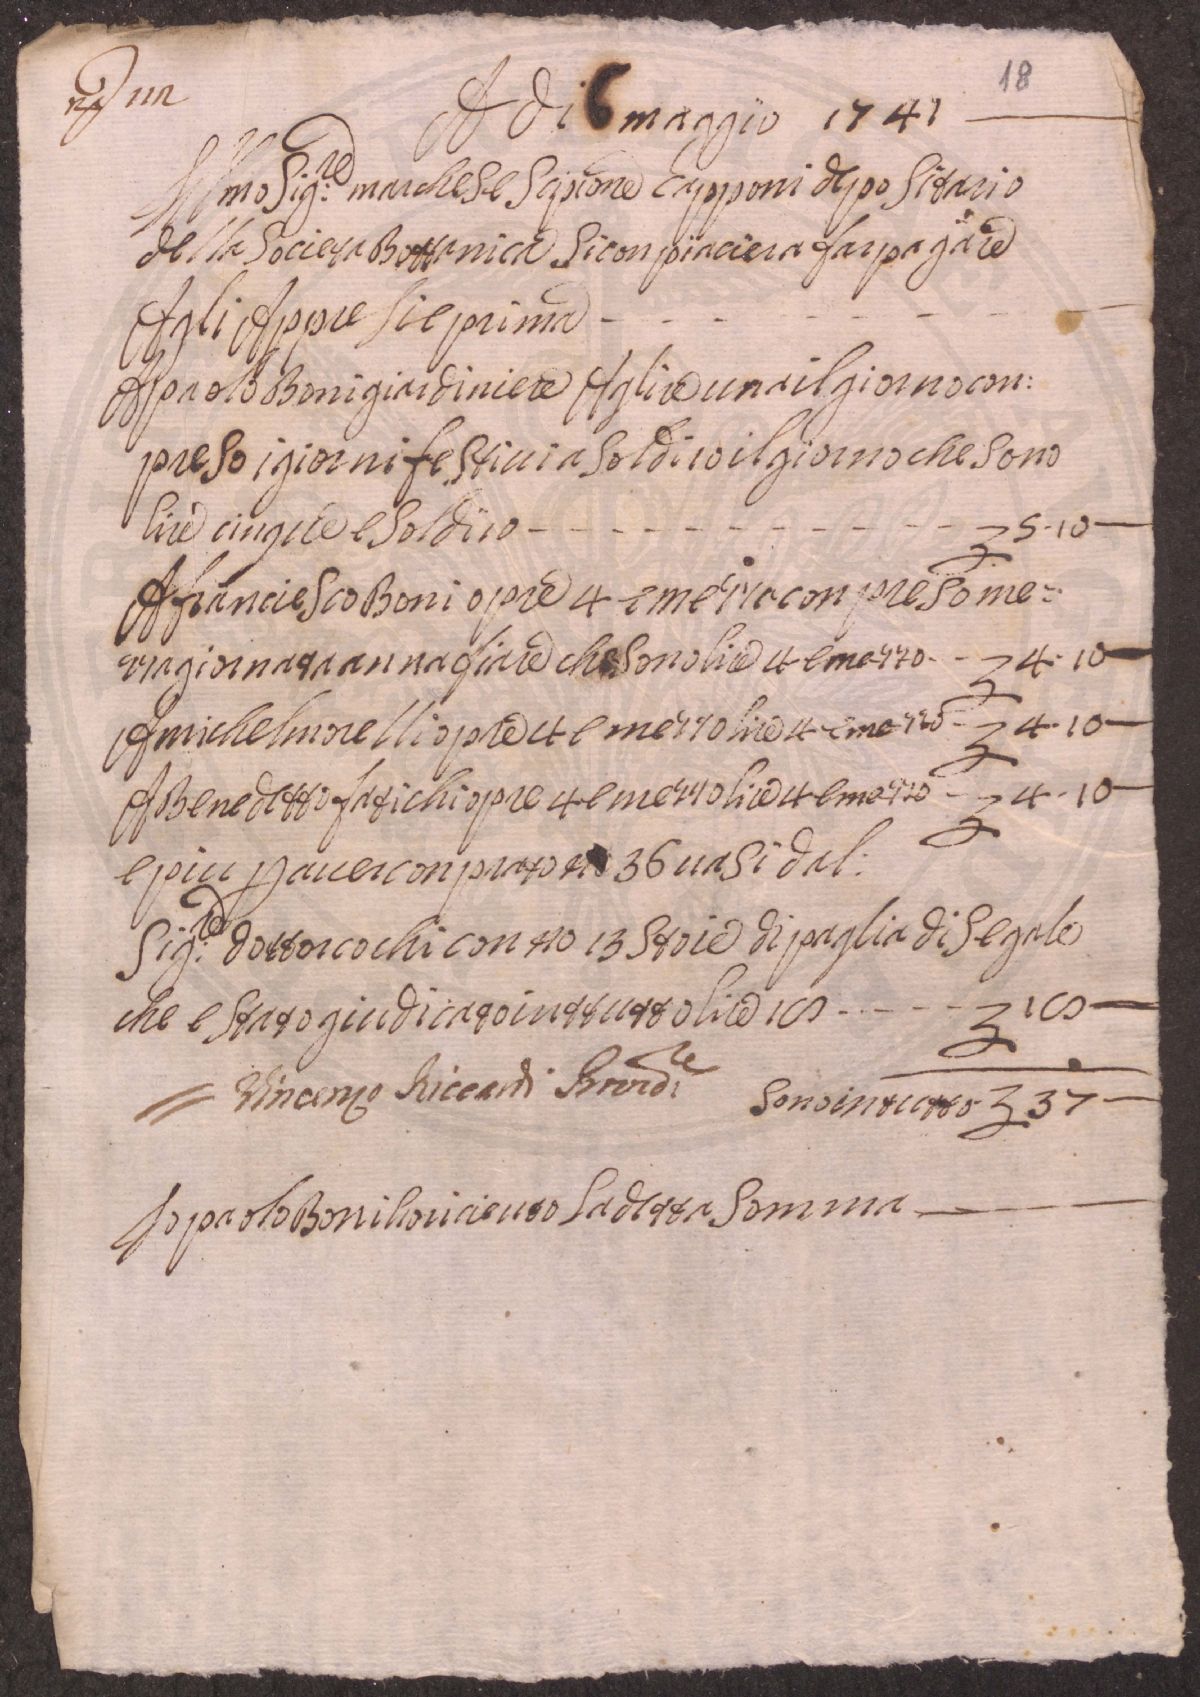 18
A di 6 maggio 1741
Ill mo Sig:re marchese Scipione Capponi depo Sitario
della Societa Bottanica Si conpiaciera far pagare
Agli Appre Si e prima
A paolo Boni giardiniere A lire una il giorno con:
preso i giorni festiui a Soldi 10 il giorno che Sono
lire cinque e Soldi 10 5 - 10
A franciesco Boni opre 4 e mezzo conpreso me=
zza giornata a annafiare che Sono lire 4 e mezzo 4 - 10
A michel morelli opre 4 e mezzo lire 4 e mezzo 4 - 10
A Benedetto fatichi opre 4 e mezzo lire 4 e mezzo 4 - 10
e piu p auer conprato no 36 uasi dal:
Sig:re dottor cochi con no 13 Stoie di paglia di Segale
che e Stato giudicato in ttutto lire 18 18
Vincenzo Riccardi Sono in tutto 37
Io paolo Boni ho riceuto la detta Somma